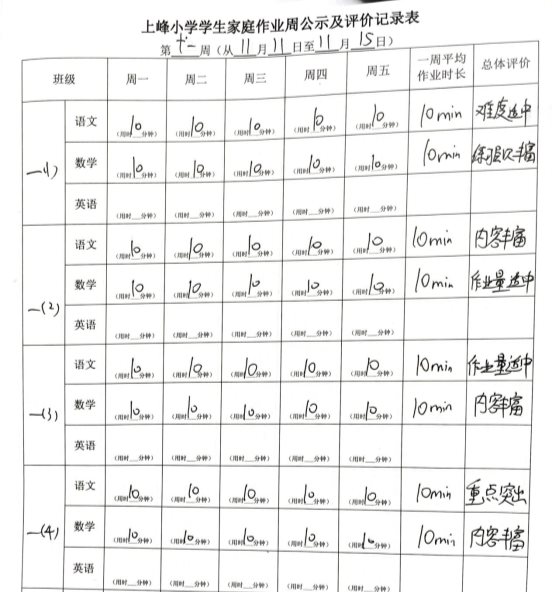 上峰小学学生家庭作业周公示及评价记录表
第十一周（从11月11日至11月15日）
班级 周一 周二 周三 周四 周五 一周平均作业时长 总体评价
一(1) 语文 （用时10分钟） （用时10分钟） （用时10分钟） （用时10分钟） （用时10分钟） 10min 难度适中
数学 （用时10分钟） （用时10分钟） （用时10分钟） （用时10分钟） （用时10分钟） 10min 丰富
英语 （用时__分钟） （用时__分钟） （用时__分钟） （用时__分钟） （用时__分钟）
一(2) 语文 （用时10分钟） （用时10分钟） （用时10分钟） （用时10分钟） （用时10分钟） 10min 内容丰富
数学 （用时10分钟） （用时10分钟） （用时10分钟） （用时10分钟） （用时10分钟） 10min 作业量适中
英语 （用时__分钟） （用时__分钟） （用时__分钟） （用时__分钟） （用时__分钟）
一(3) 语文 （用时10分钟） （用时10分钟） （用时10分钟） （用时10分钟） （用时10分钟） 10min 作业量适中
数学 （用时10分钟） （用时10分钟） （用时10分钟） （用时10分钟） （用时10分钟） 10min 内容丰富
英语 （用时__分钟） （用时__分钟） （用时__分钟） （用时__分钟） （用时__分钟）
一(4) 语文 （用时10分钟） （用时10分钟） （用时10分钟） （用时10分钟） （用时10分钟） 10min 重点突出
数学 （用时10分钟） （用时10分钟） （用时10分钟） （用时10分钟） （用时10分钟） 10min 内容丰富
英语 （用时__分钟） （用时__分钟） （用时__分钟） （用时__分钟） （用时__分钟）